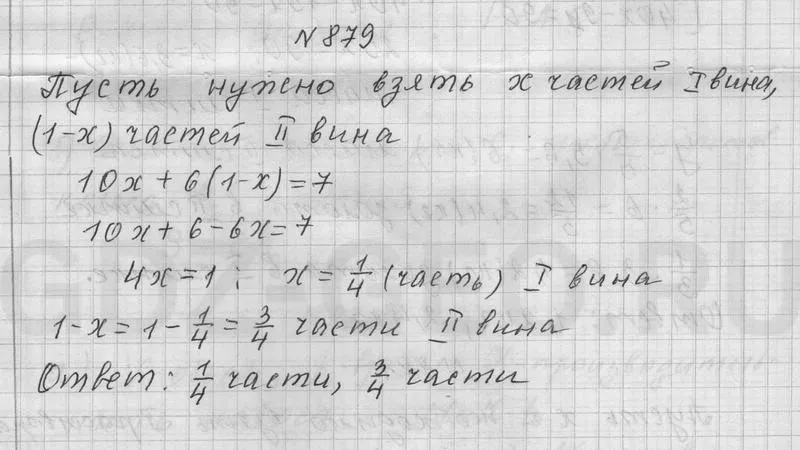 №879
Пусть нужно взять x частей I вина,
(1-x) частей II вина
10x + 6(1-x) = 7
10x + 6 - 6x = 7
4x = 1 ; x = 1/4 (часть) I вина
1-x = 1 - 1/4 = 3/4 части II вина
Ответ: 1/4 части, 3/4 части